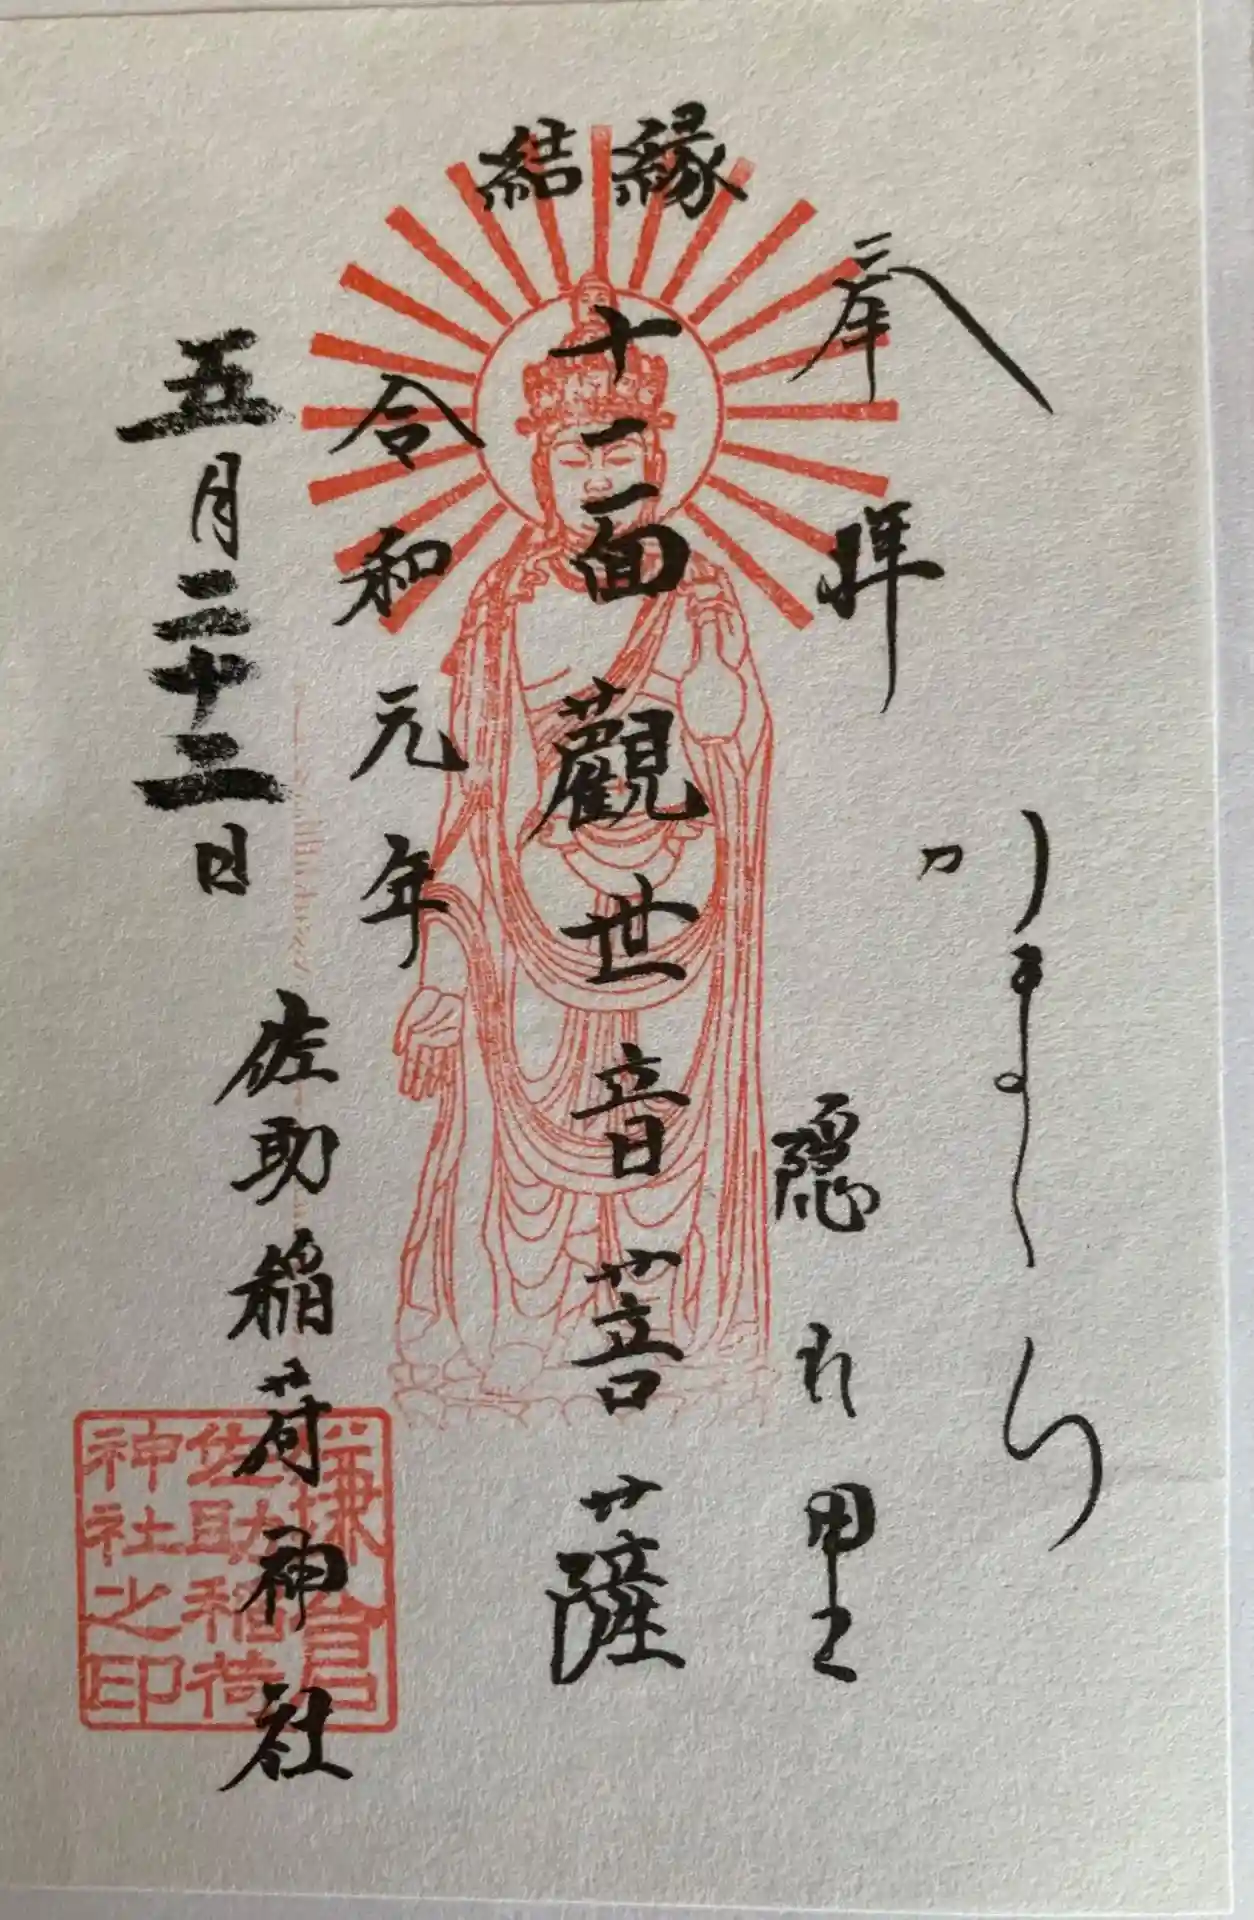 縁結
奉拝
かまくら
隠れ里
十一面觀世音菩薩
令和元年
五月二十二日
佐助稲荷神社
鎌倉
佐助稲荷
神社之印